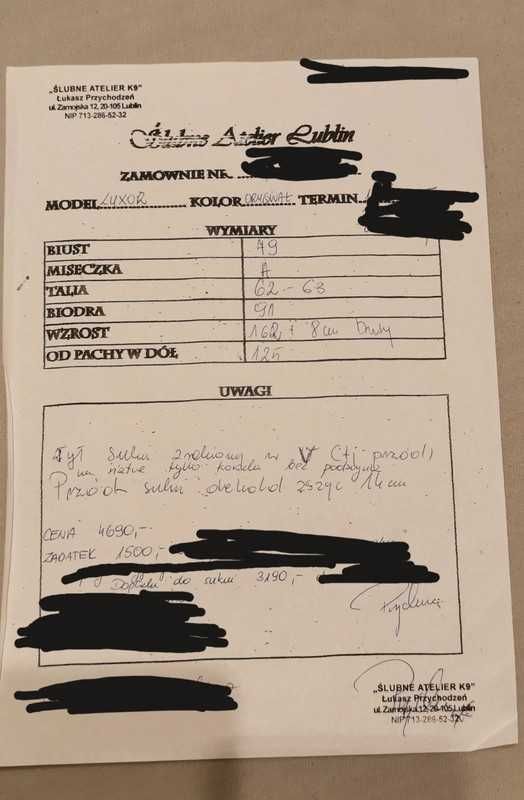 „ŚLUBNE ATELIER K9"
Łukasz Przychodzeń
ul. Zamojska 12, 20-105 Lublin
NIP 713-286-52-32
Ślubne Atelier Lublin
ZAMÓWNIE NR
MODEL LUXOR KOLOR ORYGINAŁ TERMIN
WYMIARY
BIUST 79
MISECZKA A
TALIA 62-63
BIODRA 91
WZROST 162 + 8 cm Buty
OD PACHY W DÓŁ 125
UWAGI
Tył sukni zrobiony w V (tj przód)
na siatce tylko koronka bez
Przód sukni dekold zszyć 14 cm
CENA 4690,-
ZADATEK 1500,-
Dopłata do sukni 3190,-
„ŚLUBNE ATELIER K9"
Łukasz Przychodzeń
ul. Zamojska 12, 20-105 Lublin
NIP 713-286-52-32